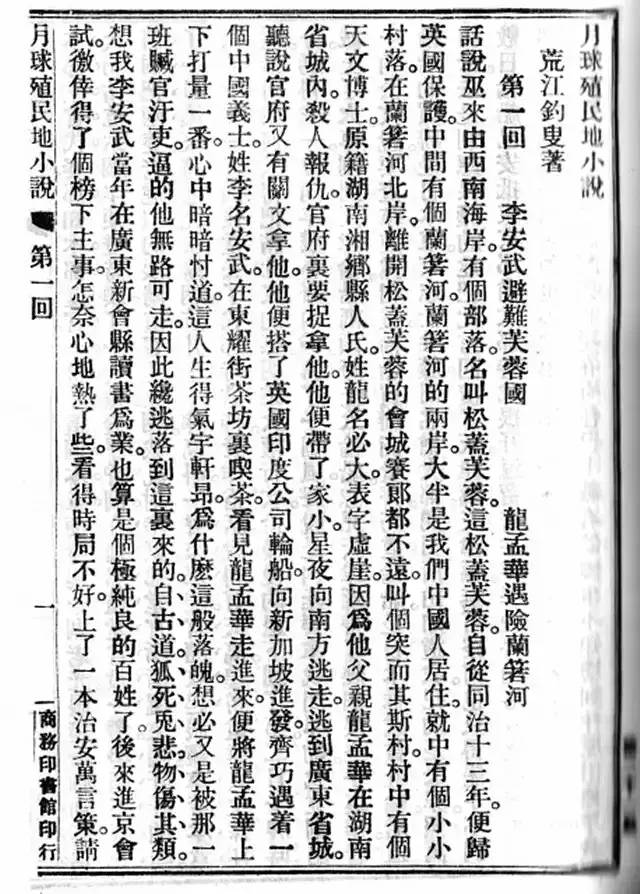 月球殖民地小說
荒江釣叟著
第一回　李安武避難芙蓉國　龍孟華遇險蘭箬河
話說巫來由西南海岸。有個部落。名叫松蓋芙蓉。這松蓋芙蓉。自從同治十三年。便歸
英國保護。中間有個蘭箬河。蘭箬河的兩岸。大半是我們中國人居住。就中有個小小
村落。在蘭箬河北岸。離開松蓋芙蓉的會城賽郞都不遠。叫個突而其斯村。村中有個
天文博士。原籍湖南湘鄉縣人氏。姓龍名必大。表字虛崖。因爲他父親龍孟華在湖南
省城內。殺人報仇。官府裏要捉拿他。他便帶了家小。星夜向南方逃走。逃到廣東省城。
聽說官府又有關文拿他。他便搭了英國印度公司輪船。向新加坡進發。齊巧遇着一
個中國義士。姓李名安武。在東耀街茶坊裏喫茶。看見龍孟華走進來。便將龍孟華上
下打量一番。心中暗暗忖道。這人生得氣宇軒昂。爲什麽這般落魄。想必又是被那一
班贓官汙吏。逼的他無路可走。因此纔逃落到這裏來的。自古道。狐死兎悲。物傷其類。
想我李安武當年在廣東新會縣讀書爲業。也算是個極純良的百姓了。後來進京會
試。徼倖得了個榜下主事。怎奈心地熱了些。看得時局不好。上了一本治安萬言策。請
月球殖民地小說　第一回　一　商務印書館印行